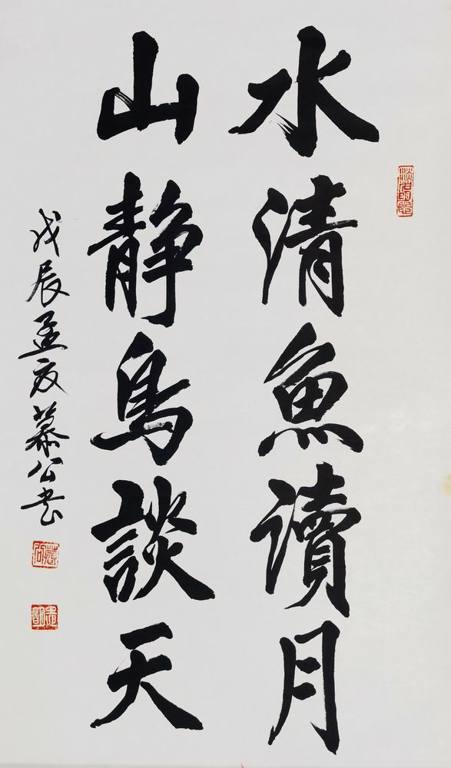 水清魚讀月
山静鳥談天
戊辰孟夏慕公书